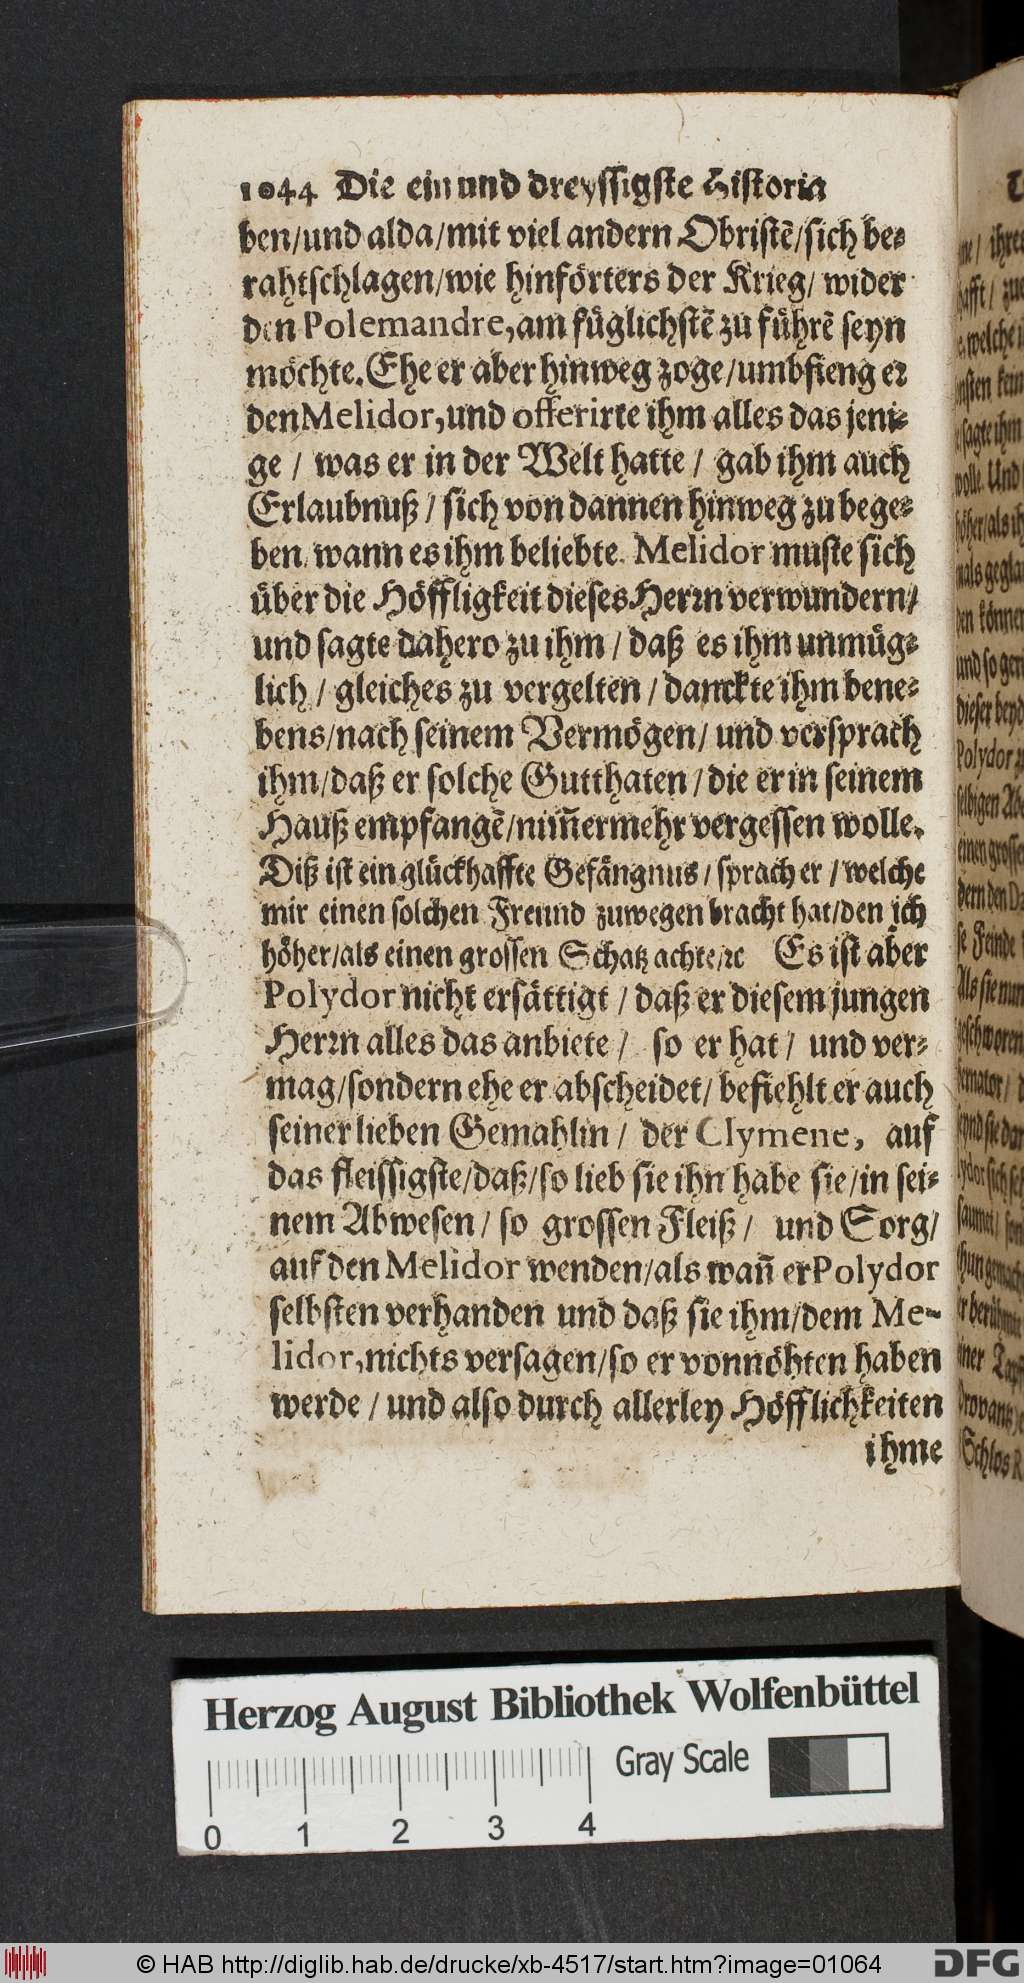 1044 Die ein und dreyssigste Historia
ben/und alda/mit viel andern Obristẽ/sich be-
rahtschlagen/wie hinförters der Krieg/ wider
den Polemandre, am füglichstẽ zu führẽ seyn
möchte. Ehe er aber hinweg zoge/umbfieng er
den Melidor, und offerirte ihm alles das jeni-
ge / was er in der Welt hatte / gab ihm auch
Erlaubnuß / sich von dannen hinweg zu bege-
ben/ wann es ihm beliebte. Melidor muste sich
über die Höffligkeit dieses Herrn verwundern/
und sagte dahero zu ihm / daß es ihm unmüg-
lich / gleiches zu vergelten / danckte ihm bene-
bens/nach seinem Vermögen/ und versprach
ihm/daß er solche Gutthaten/die er in seinem
Hauß empfangẽ/nim̃ermehr vergessen wolle.
Diß ist ein glückhaffte Gefängnus / sprach er / welche
mir einen solchen Freund zuwegen bracht hat/den ich
höher/als einen grossen Schatz achte/ꝛc Es ist aber
Polydor nicht ersättigt / daß er diesem jungen
Herrn alles das anbiete / so er hat / und ver-
mag/sondern ehe er abscheidet/ befiehlt er auch
seiner lieben Gemahlin / der Clymene, auf
das fleissigste/daß/so lieb sie ihn habe sie/in sei-
nem Abwesen / so grossen Fleiß / und Sorg/
auf den Melidor wenden/als wañ er Polydor
selbsten verhanden und daß sie ihm/dem Me-
lidor, nichts versagen/so er vonnöhten haben
werde / und also durch allerley Höfflichkeiten
ihme
ihre
hafft / zu
welche
sagte ihm
wolle. Und
höher/als ih
den können
und so ger
dieser beyd
Polydor
selbigen Abe
einen grosse
dern den Da
se Feinde
Als sie nun
geschworen
Schlos
Herzog August Bibliothek Wolfenbüttel
Gray Scale
0 1 2 3 4
© HAB http://diglib.hab.de/drucke/xb-4517/start.htm?image=01064
DFG